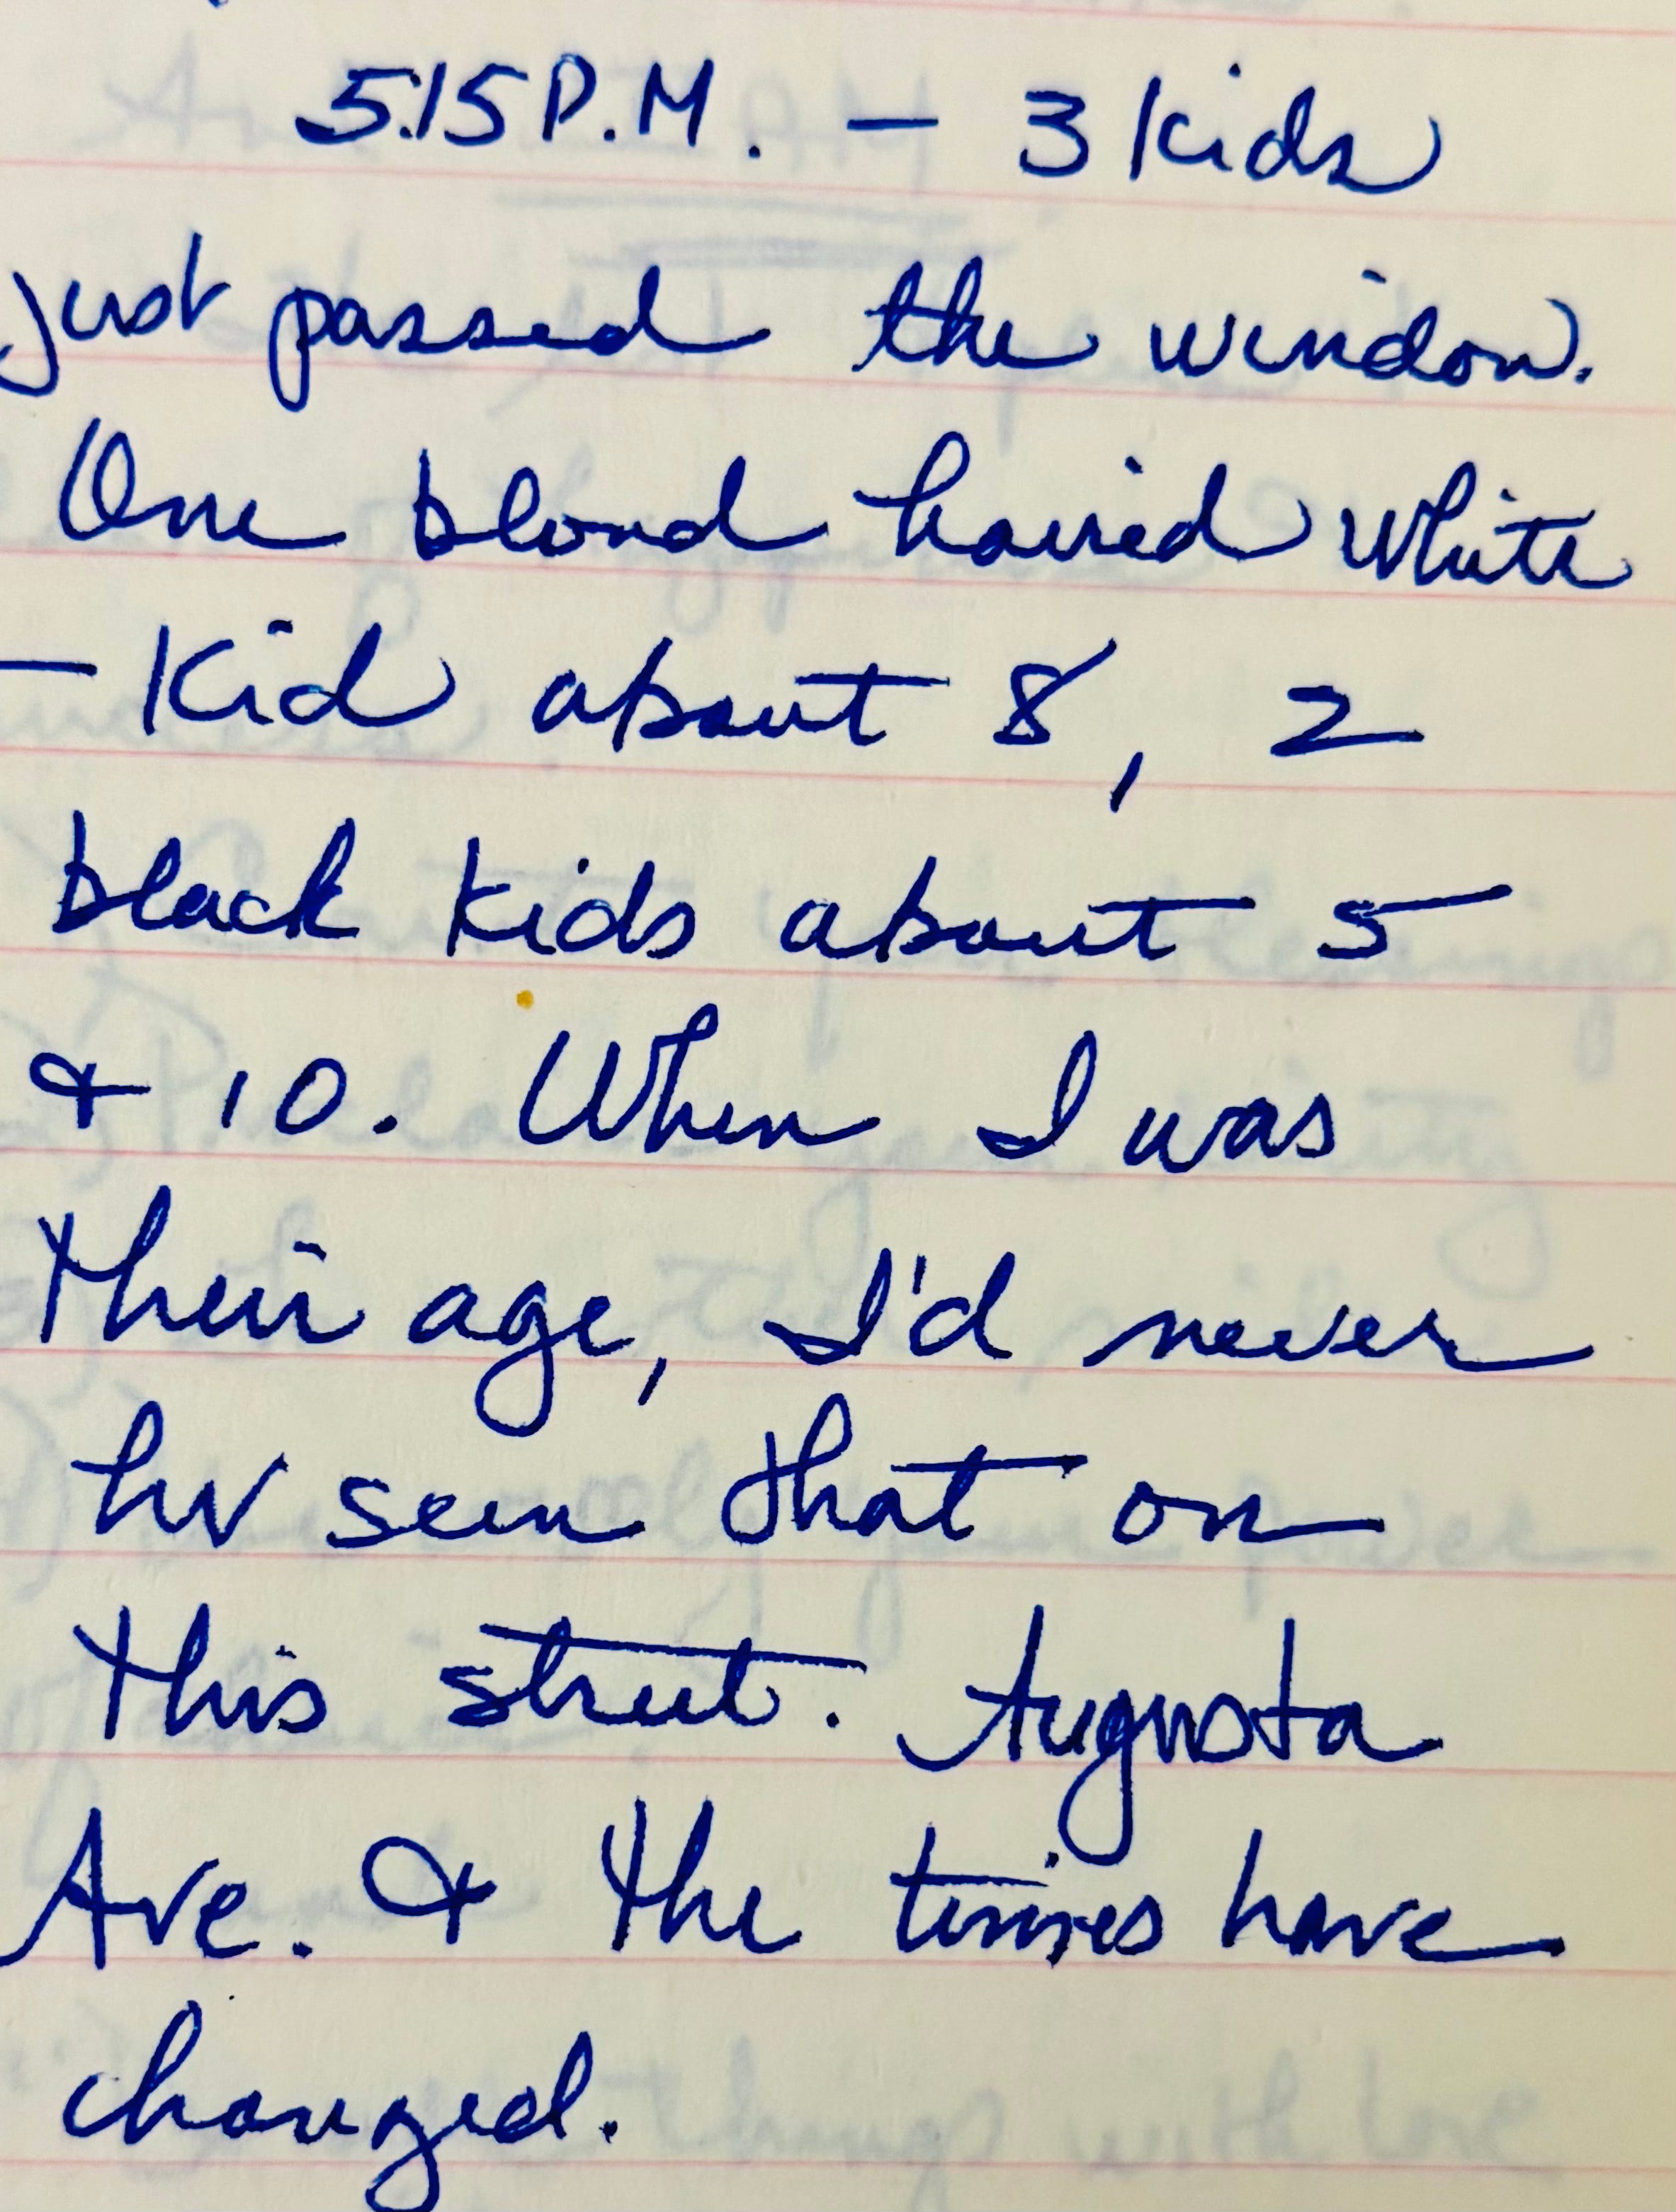 5:15 P.M. — 3 kids
just passed the window.
One blond haired white
— kid about 8, 2
black kids about 5
& 10. When I was
their age, I'd never
hv seen that on
this street. Augusta
Ave. & the times have
changed.